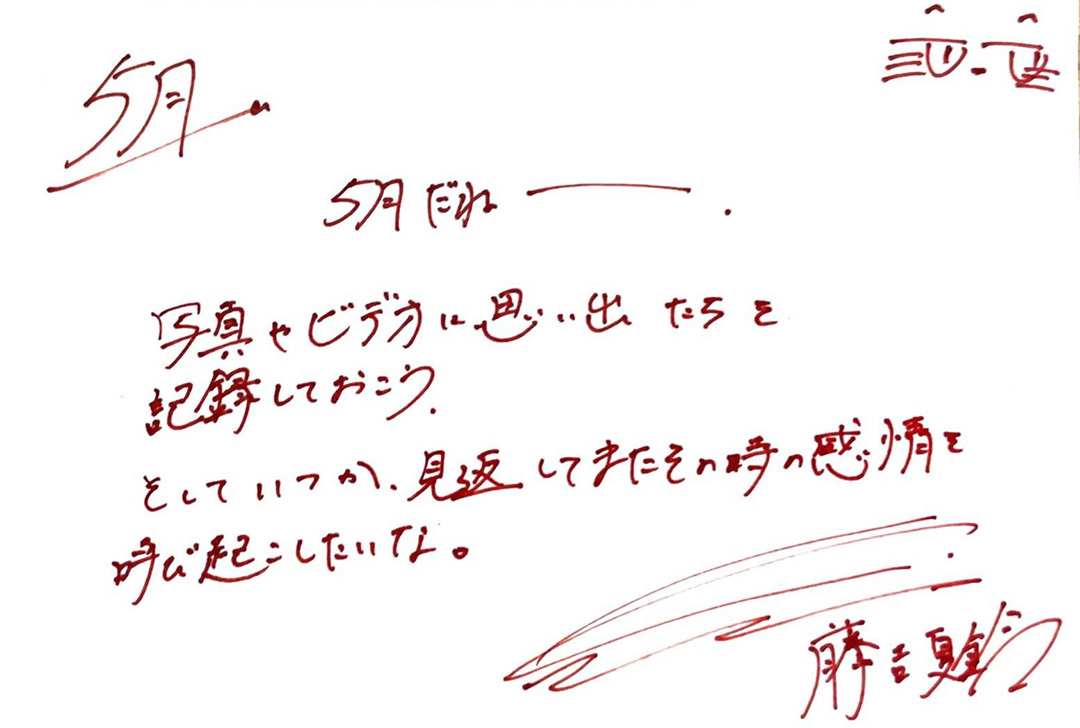 5月
5月だね──.
写真やビデオに思い出たちを
記録しておこう.
そしていつか、見返してまたその時の感情を
呼び起こしたいな。
藤吉夏鈴